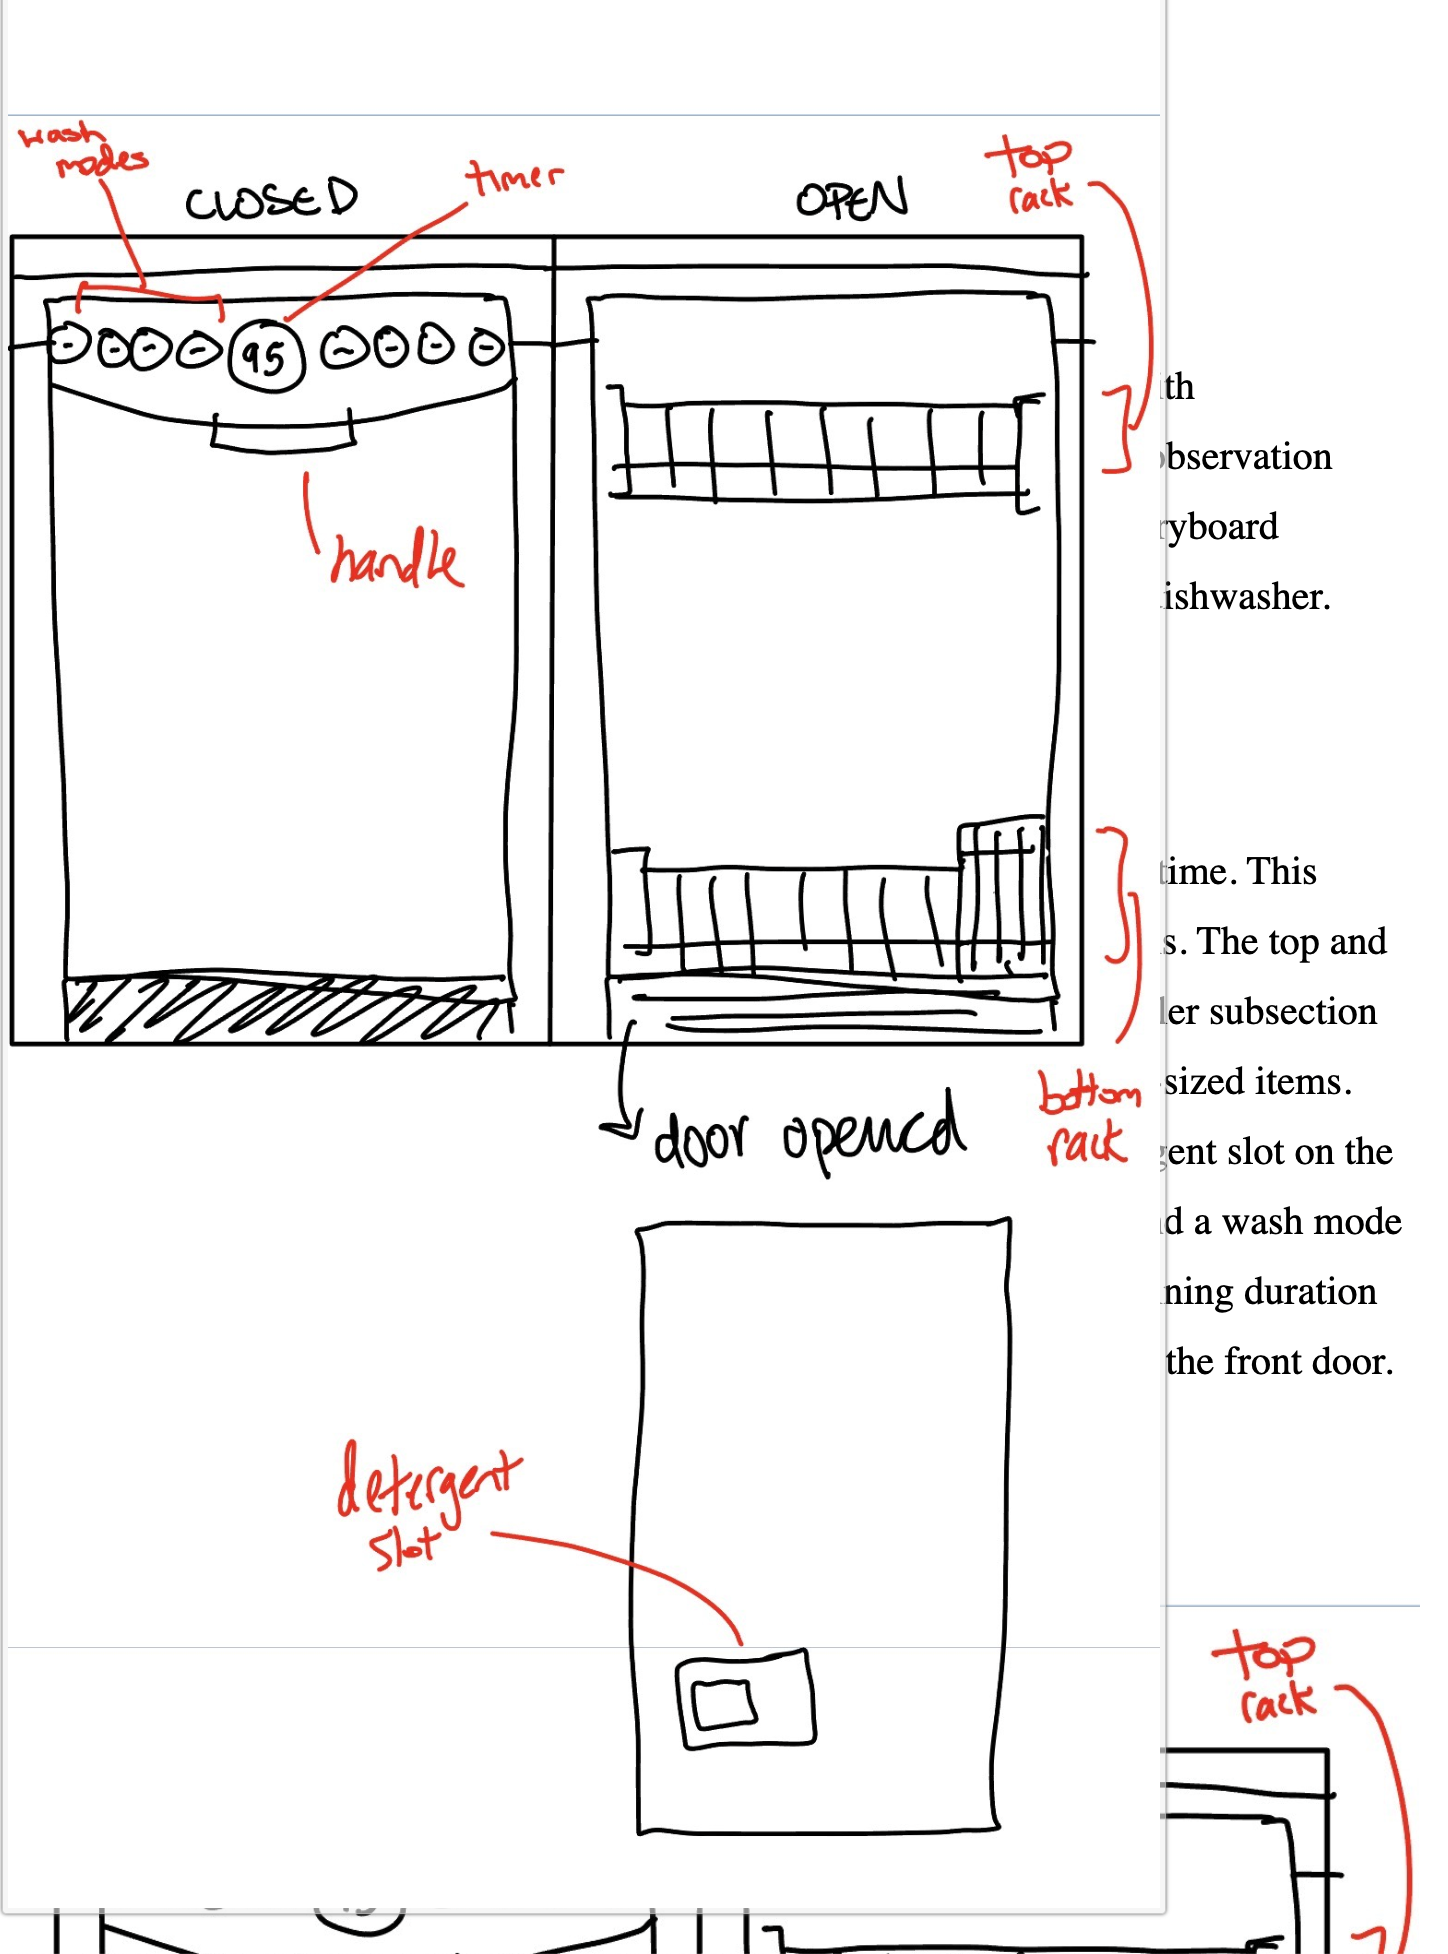 wash
modes
CLOSED
timer
OPEN
top
rack
95
handle
door opened
bottom
rack
detergent
slot
ith
bservation
ryboard
ishwasher.
time. This
s. The top and
ler subsection
sized items.
gent slot on the
d a wash mode
ning duration
the front door.
top
rack